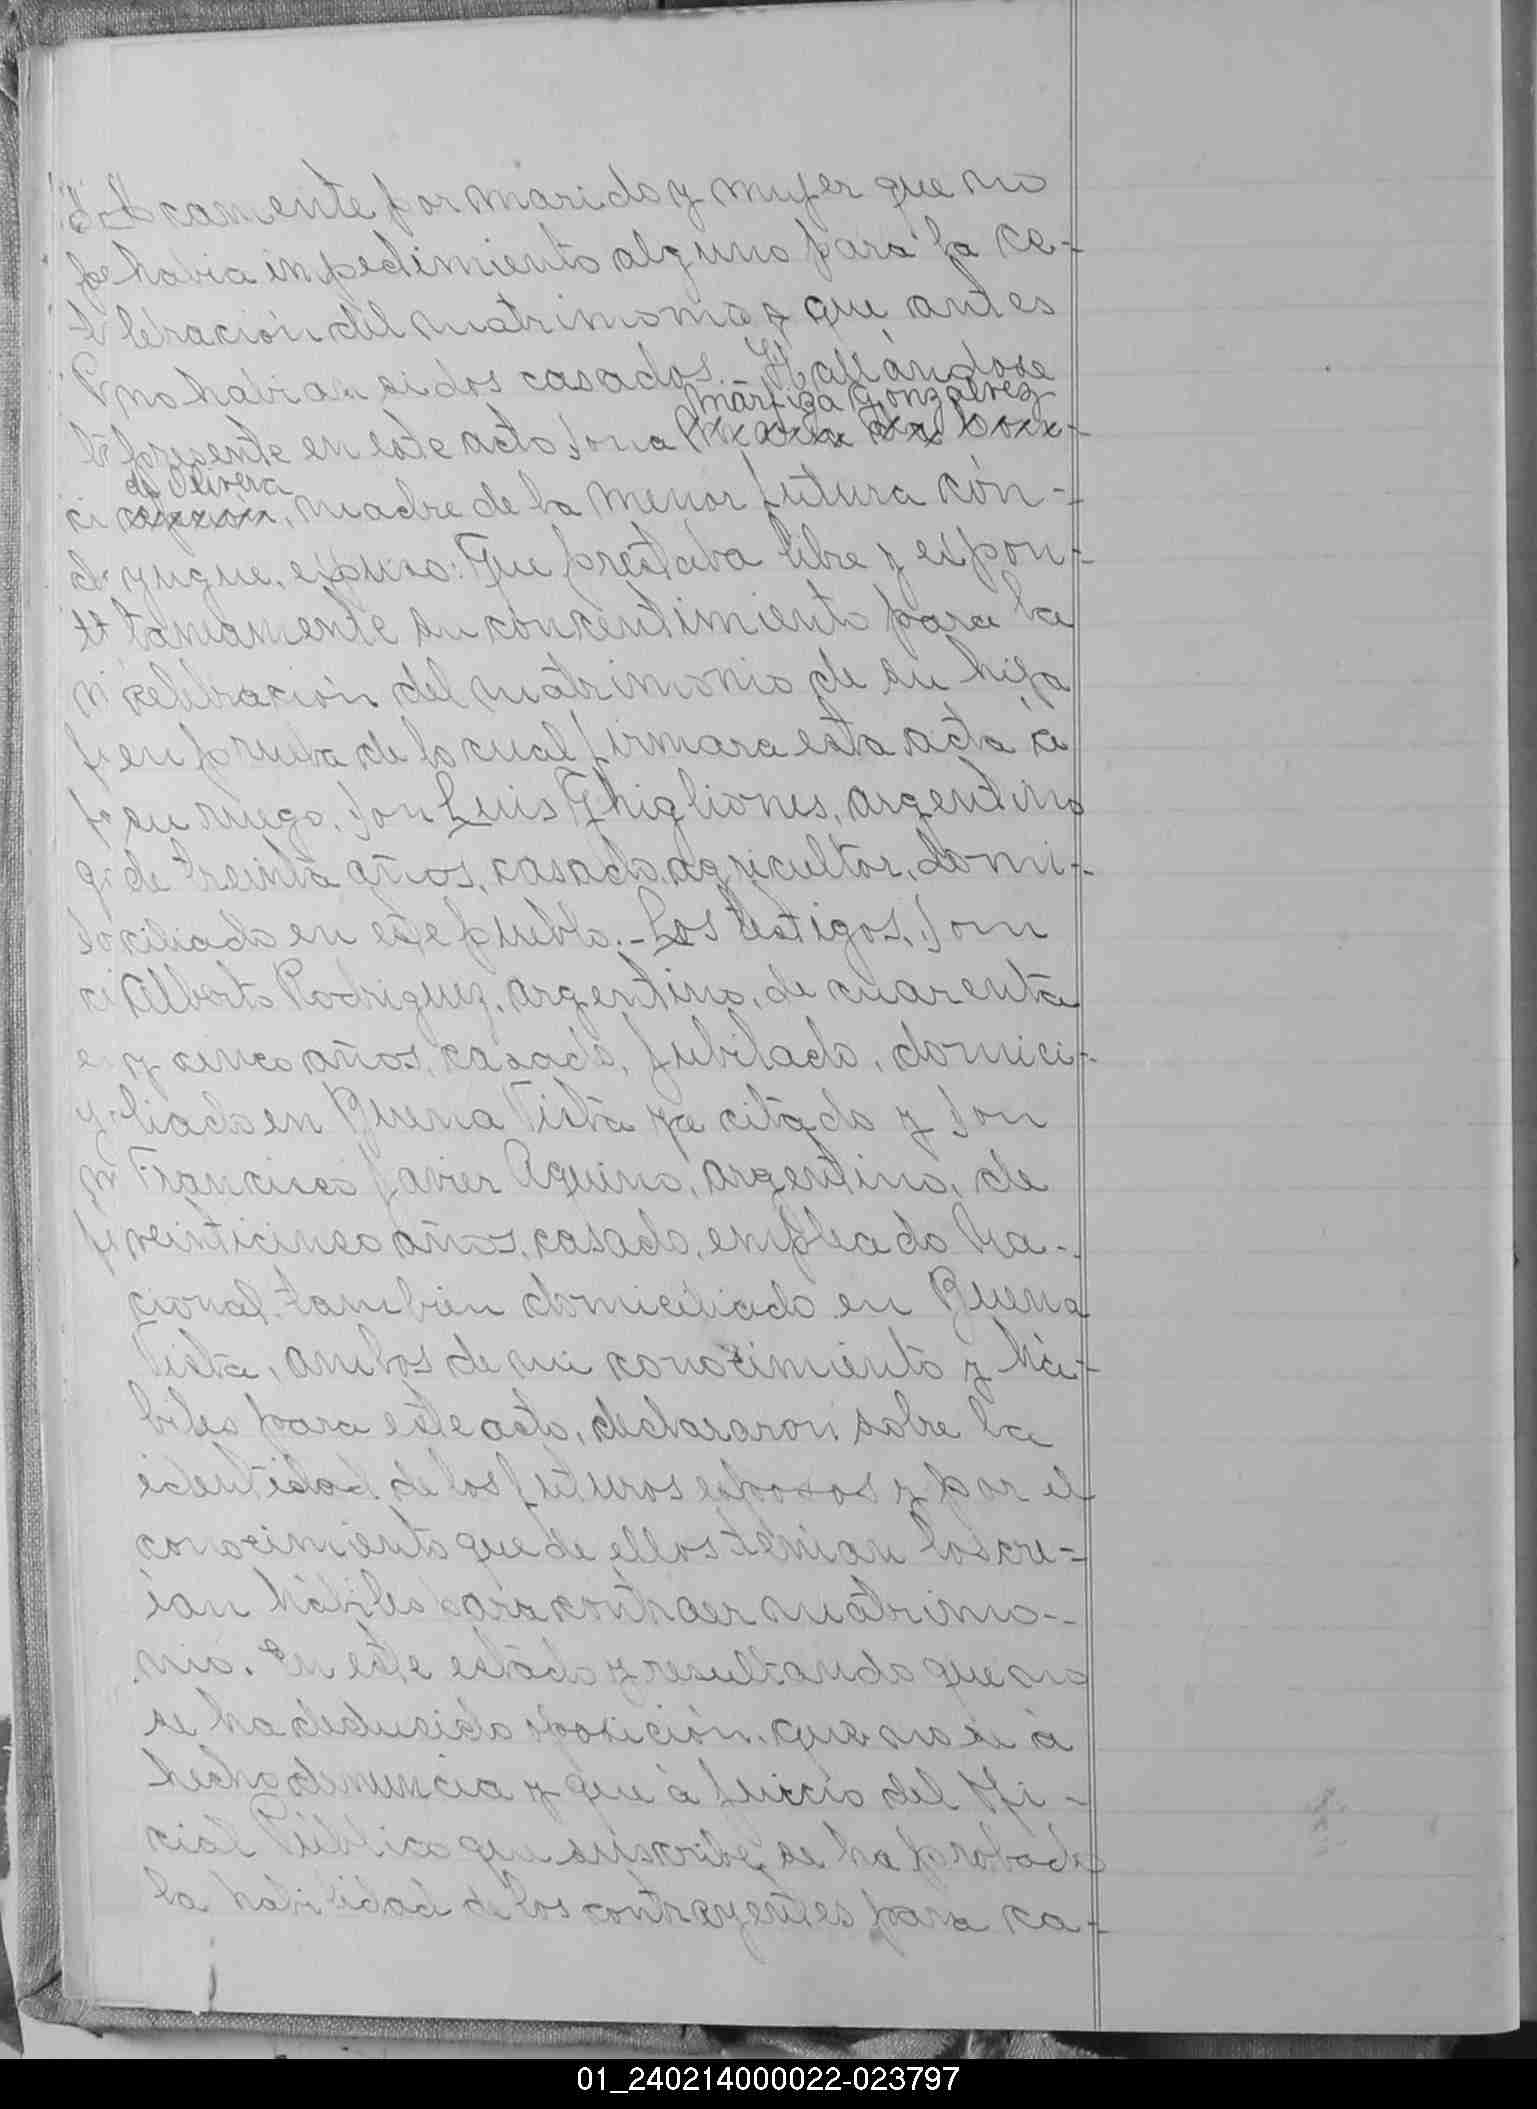 camente por marido y mujer que no
habia impedimiento alguno para la ce-
lebración del matrimonio y que antes
no habian sidos casados. Hallándose
Martiza Gonzalvez
presente en este acto Dona
de Olivera
, madre de la menor futura cón-
yugue, expuso: Que prestaba libre y espon-
taneamente su concentimiento para la
celebración del matrimonio de su hija
en prueba de lo cual firmara esta acta á
su ruego, Don Luis Ghigliones, argentino
de treinta años, casado, agricultor, domi-
ciliado en este pueblo.- Los testigos, Don
Alberto Rodriguez, argentino, de cuarenta
y cinco años, casado, jubilado, domici-
liado en Buena Vista ya citado y Don
Francisco Javier Aquino, argentino, de
veinticinco años, casado, empleado Na-
cional, tambien domiciliado en Buena
Vista, ambos de mi conocimiento y há-
biles para este acto, declararon sobre la
identidad de los futuros esposos y por el
conocimiento que de ellos tenian los cre-
ían hábiles para contraer matrimo-
nio. En este estado y resultando que no
se ha deducido oposición, que no se á
hecho denuncia y que á juicio del Ofi-
cial Público que suscribe, se ha probado
la habilidad de los contrayentes para ca-
01_240214000022-023797